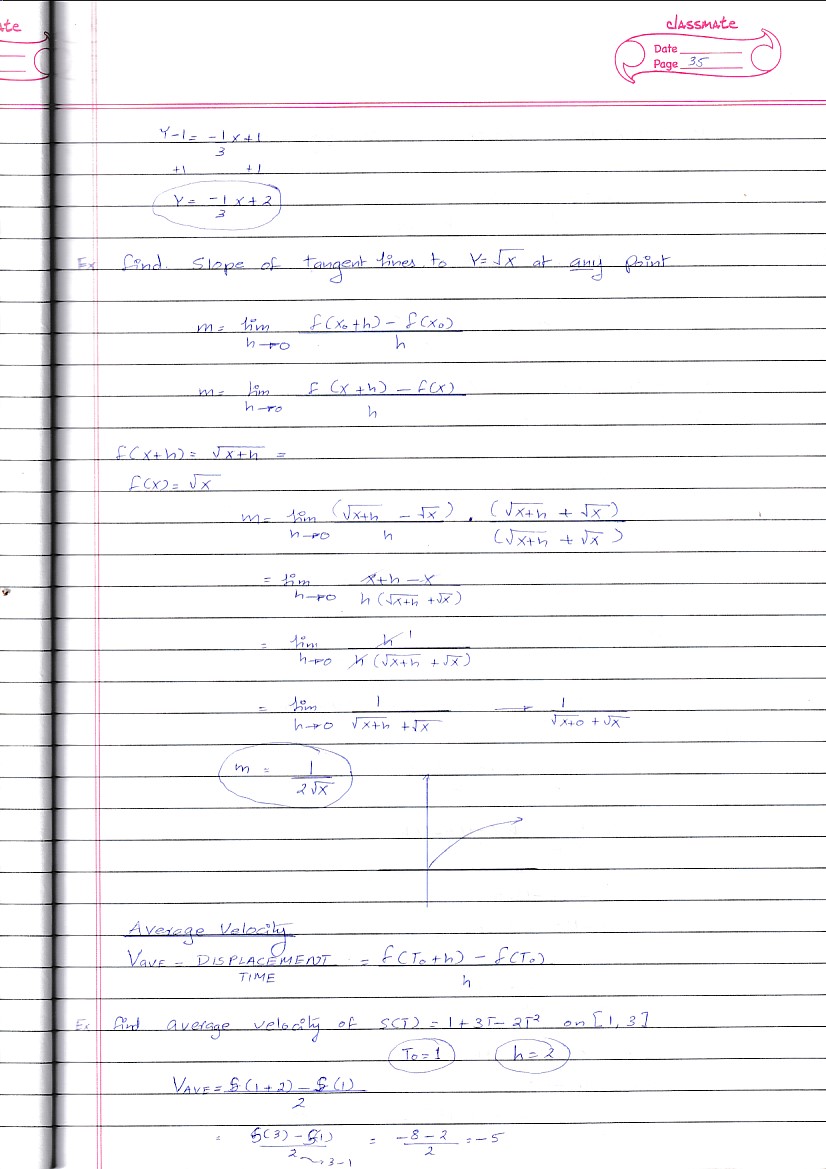 ate
classmate
Date
Page 35
Y-1 = -1/3 x+1
+1 +1
Y = -1/3 x+2
Ex find. Slope of tangent lines to Y=√x at any point
m = lim h→0 f(x₀+h) - f(x₀) / h
m = lim h→0 f(x+h) - f(x) / h
f(x+h) = √x+h =
f(x) = √x
m = lim h→0 (√x+h - √x) / h · (√x+h + √x) / (√x+h + √x)
= lim h→0 x+h-x / h(√x+h + √x)
= lim h→0 h 1 / h(√x+h + √x)
= lim h→0 1 / √x+h + √x → 1 / √x+0 + √x
m = 1 / 2√x
Average Velocity
VAVE = DISPLACEMENT / TIME = f(T₀+h) - f(T₀) / h
Ex find average velocity of S(T) = 1+3T-2T² on [1, 3]
T₀=1 h=2
VAVE = S(1+2) - S(1) / 2
= S(3) - S(1) / 2 → 3-1 = -8-2 / 2 = -5